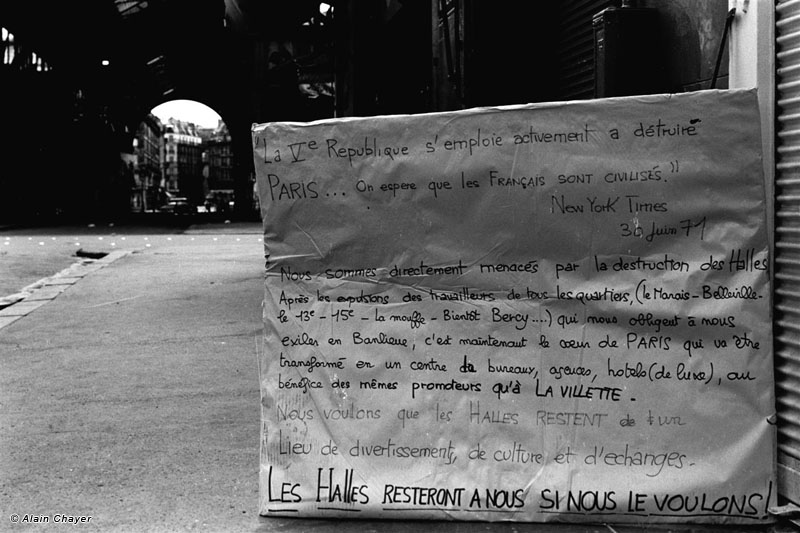 "La Ve Republique s'emploie activement a détruire
PARIS... On espere que les FRANÇAIS SONT CIVILISÉS."
New York Times
30 Juin 71
Nous sommes directement menacés par la destruction des Halles
Après les expulsions des travailleurs de tous les quartiers, (le Marais - Belleville -
le 13e - 15e - La mouffe - Bientôt Bercy....) qui nous obligent à nous
exiler en Banlieue, c'est maintenant le cœur de PARIS qui va être
transformé en un centre de bureaux, agences, hotels (de luxe), au
bénéfice des mêmes promoteurs qu'à LA VILLETTE -
Nous voulons que les HALLES RESTENT un
Lieu de divertissement, de culture et d'echanges -
LES HALLES RESTERONT A NOUS SI NOUS LE VOULONS!
© Alain Chayer